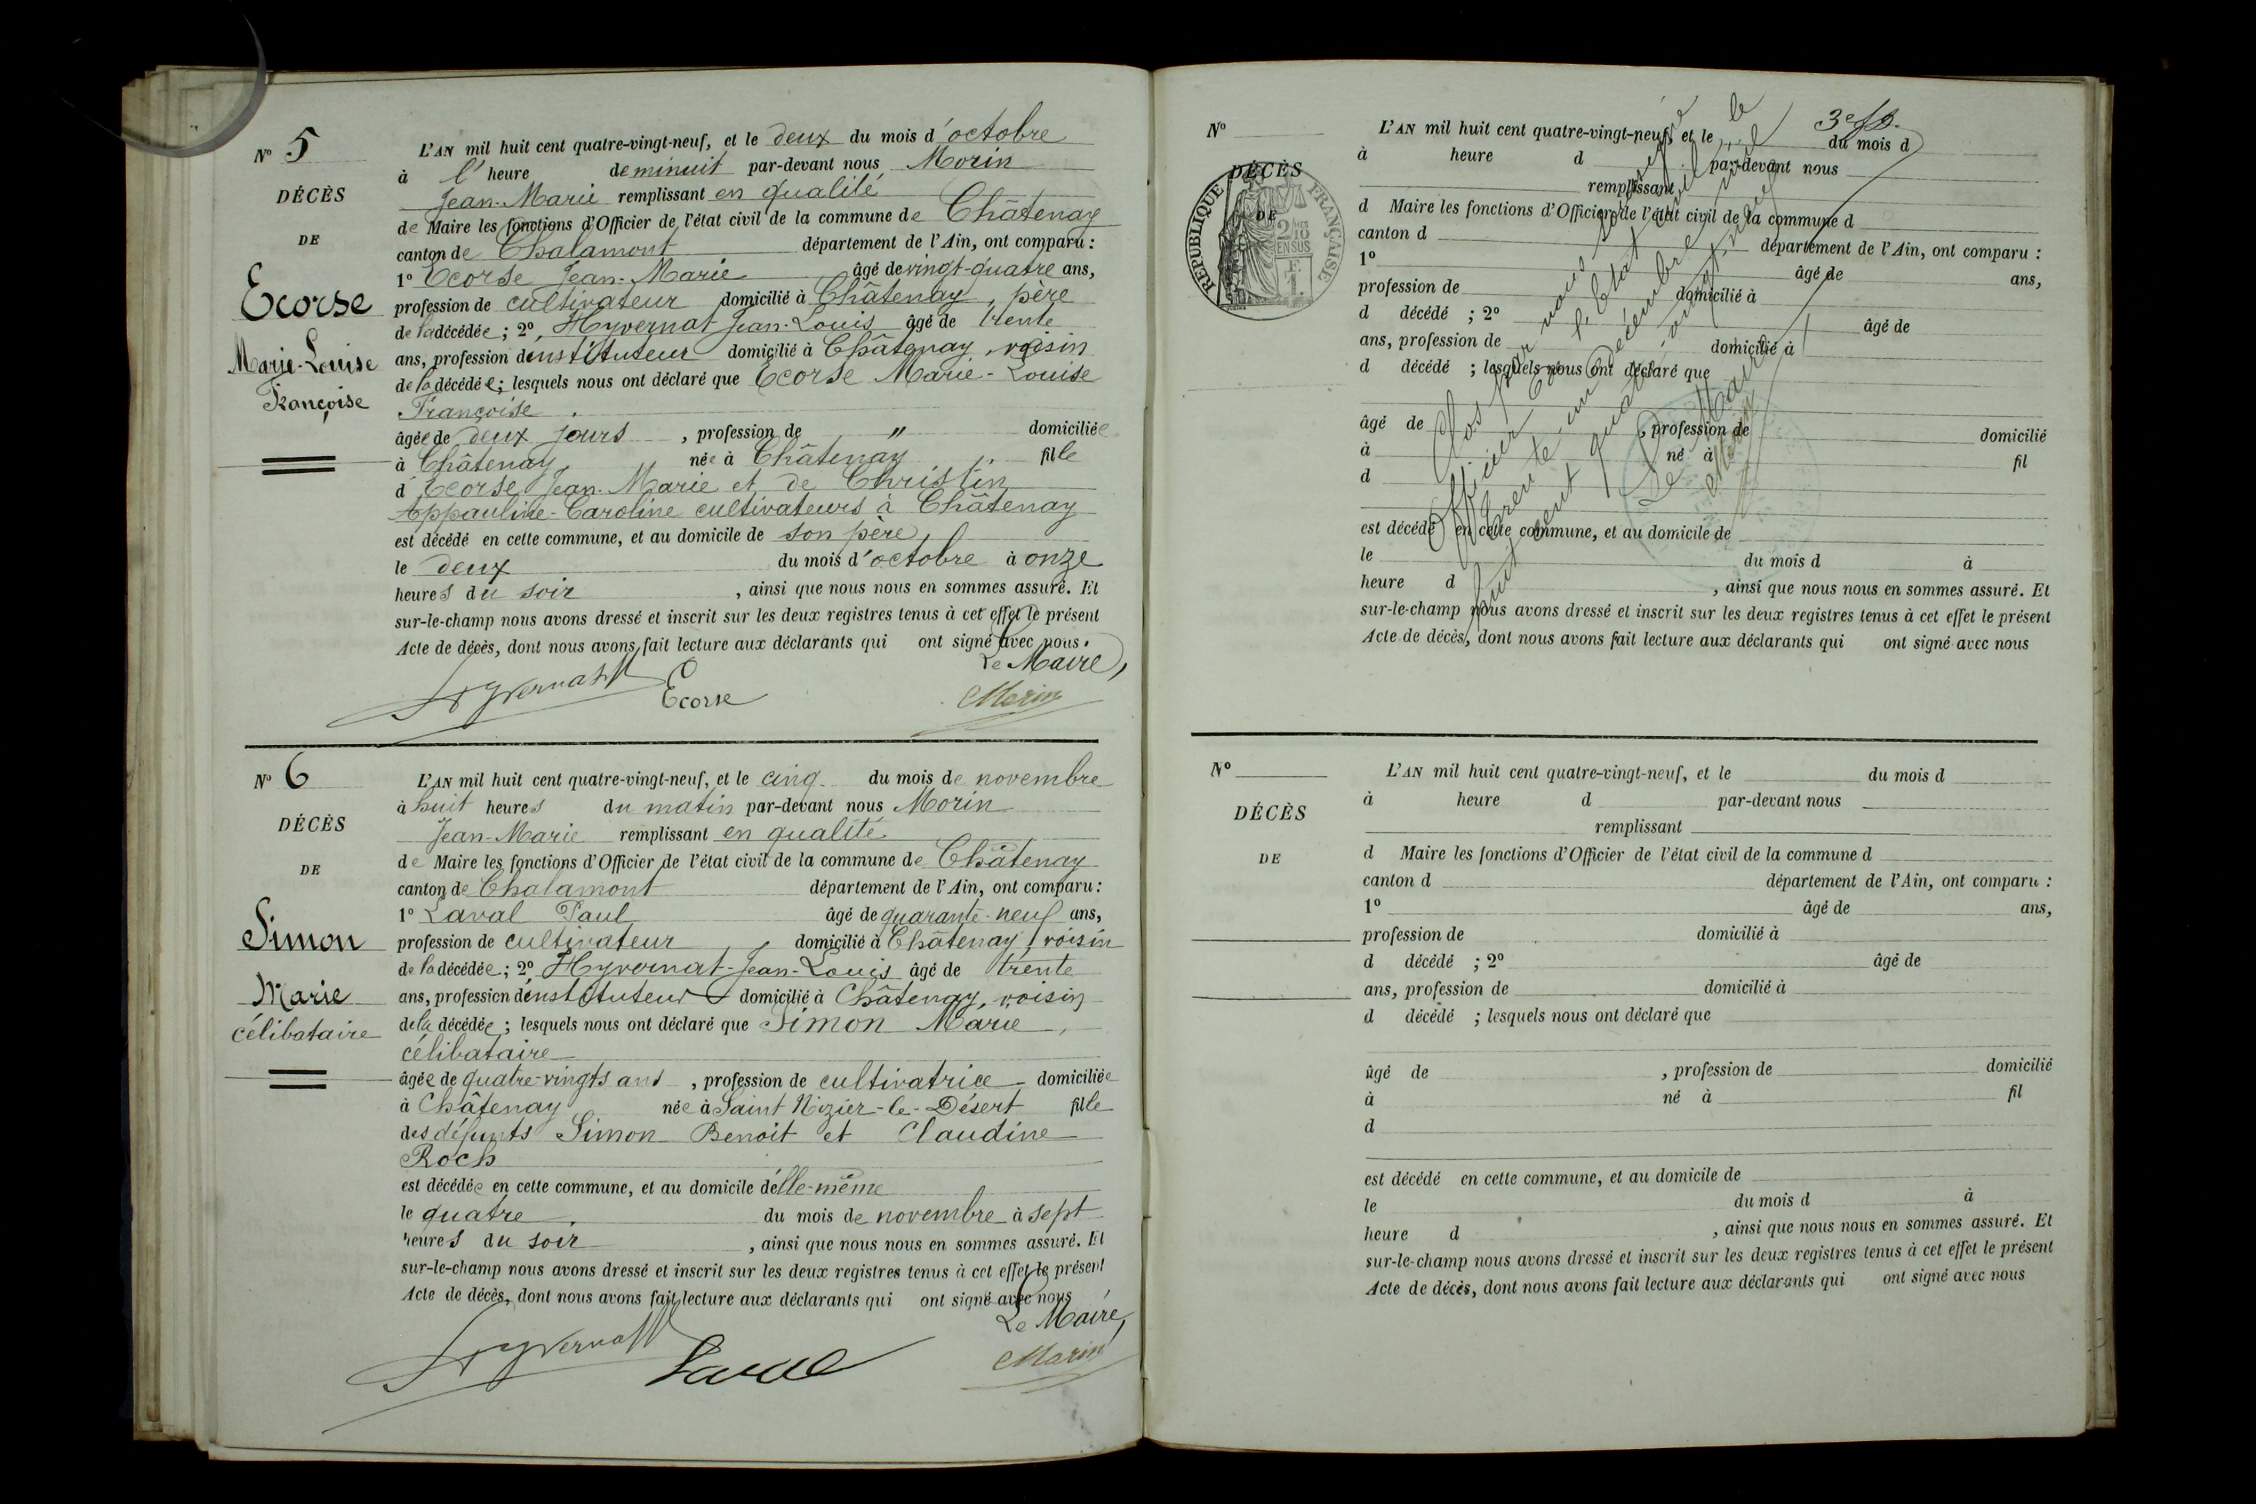 N° 5
DÉCÈS
DE
Ecorse
Marie-Louise
Françoise
L'AN mil huit cent quatre-vingt-neuf, et le deux du mois d'octobre
à l'heure de minuit par-devant nous Morin
Jean-Marie remplissant en qualité
de Maire les fonctions d'Officier de l'état civil de la commune de Châtenay
canton de Chalamont département de l'Ain, ont comparu :
1° Ecorse Jean-Marie âgé de vingt-quatre ans,
profession de cultivateur domicilié à Châtenay, père
de la décédée ; 2° Hyvernat Jean-Louis âgé de trente
ans, profession d'instituteur domicilié à Châtenay, voisin
de la décédée ; lesquels nous ont déclaré que Ecorse Marie-Louise
Françoise
âgée de deux jours , profession de " domiciliée
à Châtenay née à Châtenay fille
d'Ecorse Jean-Marie et de Christin
Appauline-Caroline cultivateurs à Châtenay
est décédé en cette commune, et au domicile de son père
le deux du mois d'octobre à onze
heures du soir , ainsi que nous nous en sommes assuré. Et
sur-le-champ nous avons dressé et inscrit sur les deux registres tenus à cet effet le présent
Acte de décès, dont nous avons fait lecture aux déclarants qui ont signé avec nous.
Le Maire,
Hyvernat Ecorse Morin
N° 6
DÉCÈS
DE
Simon
Marie
célibataire
L'AN mil huit cent quatre-vingt-neuf, et le cinq du mois de novembre
à huit heures du matin par-devant nous Morin
Jean-Marie remplissant en qualité
de Maire les fonctions d'Officier de l'état civil de la commune de Châtenay
canton de Chalamont département de l'Ain, ont comparu :
1° Laval Paul âgé de quarante-neuf ans,
profession de cultivateur domicilié à Châtenay, voisin
de la décédée ; 2° Hyvernat Jean-Louis âgé de trente
ans, profession d'instituteur domicilié à Châtenay, voisin
de la décédée ; lesquels nous ont déclaré que Simon Marie,
célibataire
âgée de quatre-vingts ans , profession de cultivatrice domiciliée
à Châtenay née à Saint Nizier-le-Désert fille
des défunts Simon Benoit et Claudine
Roch
est décédée en cette commune, et au domicile d'elle-même
le quatre du mois de novembre à sept
heures du soir , ainsi que nous nous en sommes assuré. Et
sur-le-champ nous avons dressé et inscrit sur les deux registres tenus à cet effet le présent
Acte de décès, dont nous avons fait lecture aux déclarants qui ont signé avec nous
Le Maire,
Hyvernat Laval Morin
3e f.
N°
DÉCÈS
DE
RÉPUBLIQUE FRANÇAISE
2/10 EN SUS
L'AN mil huit cent quatre-vingt-neuf, et le du mois d
à heure d par-devant nous
remplissant
d Maire les fonctions d'Officier de l'état civil de la commune d
canton d département de l'Ain, ont comparu :
1° âgé de ans,
profession de domicilié à
d décédé ; 2° âgé de
ans, profession de domicilié à
d décédé ; lesquels nous ont déclaré que
âgé de , profession de domicilié
à né à fil
d
est décédé en cette commune, et au domicile de
le du mois d à
heure d , ainsi que nous nous en sommes assuré. Et
sur-le-champ nous avons dressé et inscrit sur les deux registres tenus à cet effet le présent
Acte de décès, dont nous avons fait lecture aux déclarants qui ont signé avec nous
Clos par nous soussigné
Officier de l'Etat civil, le
trente-un décembre mil
huit cent quatre-vingt-neuf
Le Maire
Morin
N°
DÉCÈS
DE
L'AN mil huit cent quatre-vingt-neuf, et le du mois d
à heure d par-devant nous
remplissant
d Maire les fonctions d'Officier de l'état civil de la commune d
canton d département de l'Ain, ont comparu :
1° âgé de ans,
profession de domicilié à
d décédé ; 2° âgé de
ans, profession de domicilié à
d décédé ; lesquels nous ont déclaré que
âgé de , profession de domicilié
à né à fil
d
est décédé en cette commune, et au domicile de
le du mois d à
heure d , ainsi que nous nous en sommes assuré. Et
sur-le-champ nous avons dressé et inscrit sur les deux registres tenus à cet effet le présent
Acte de décès, dont nous avons fait lecture aux déclarants qui ont signé avec nous